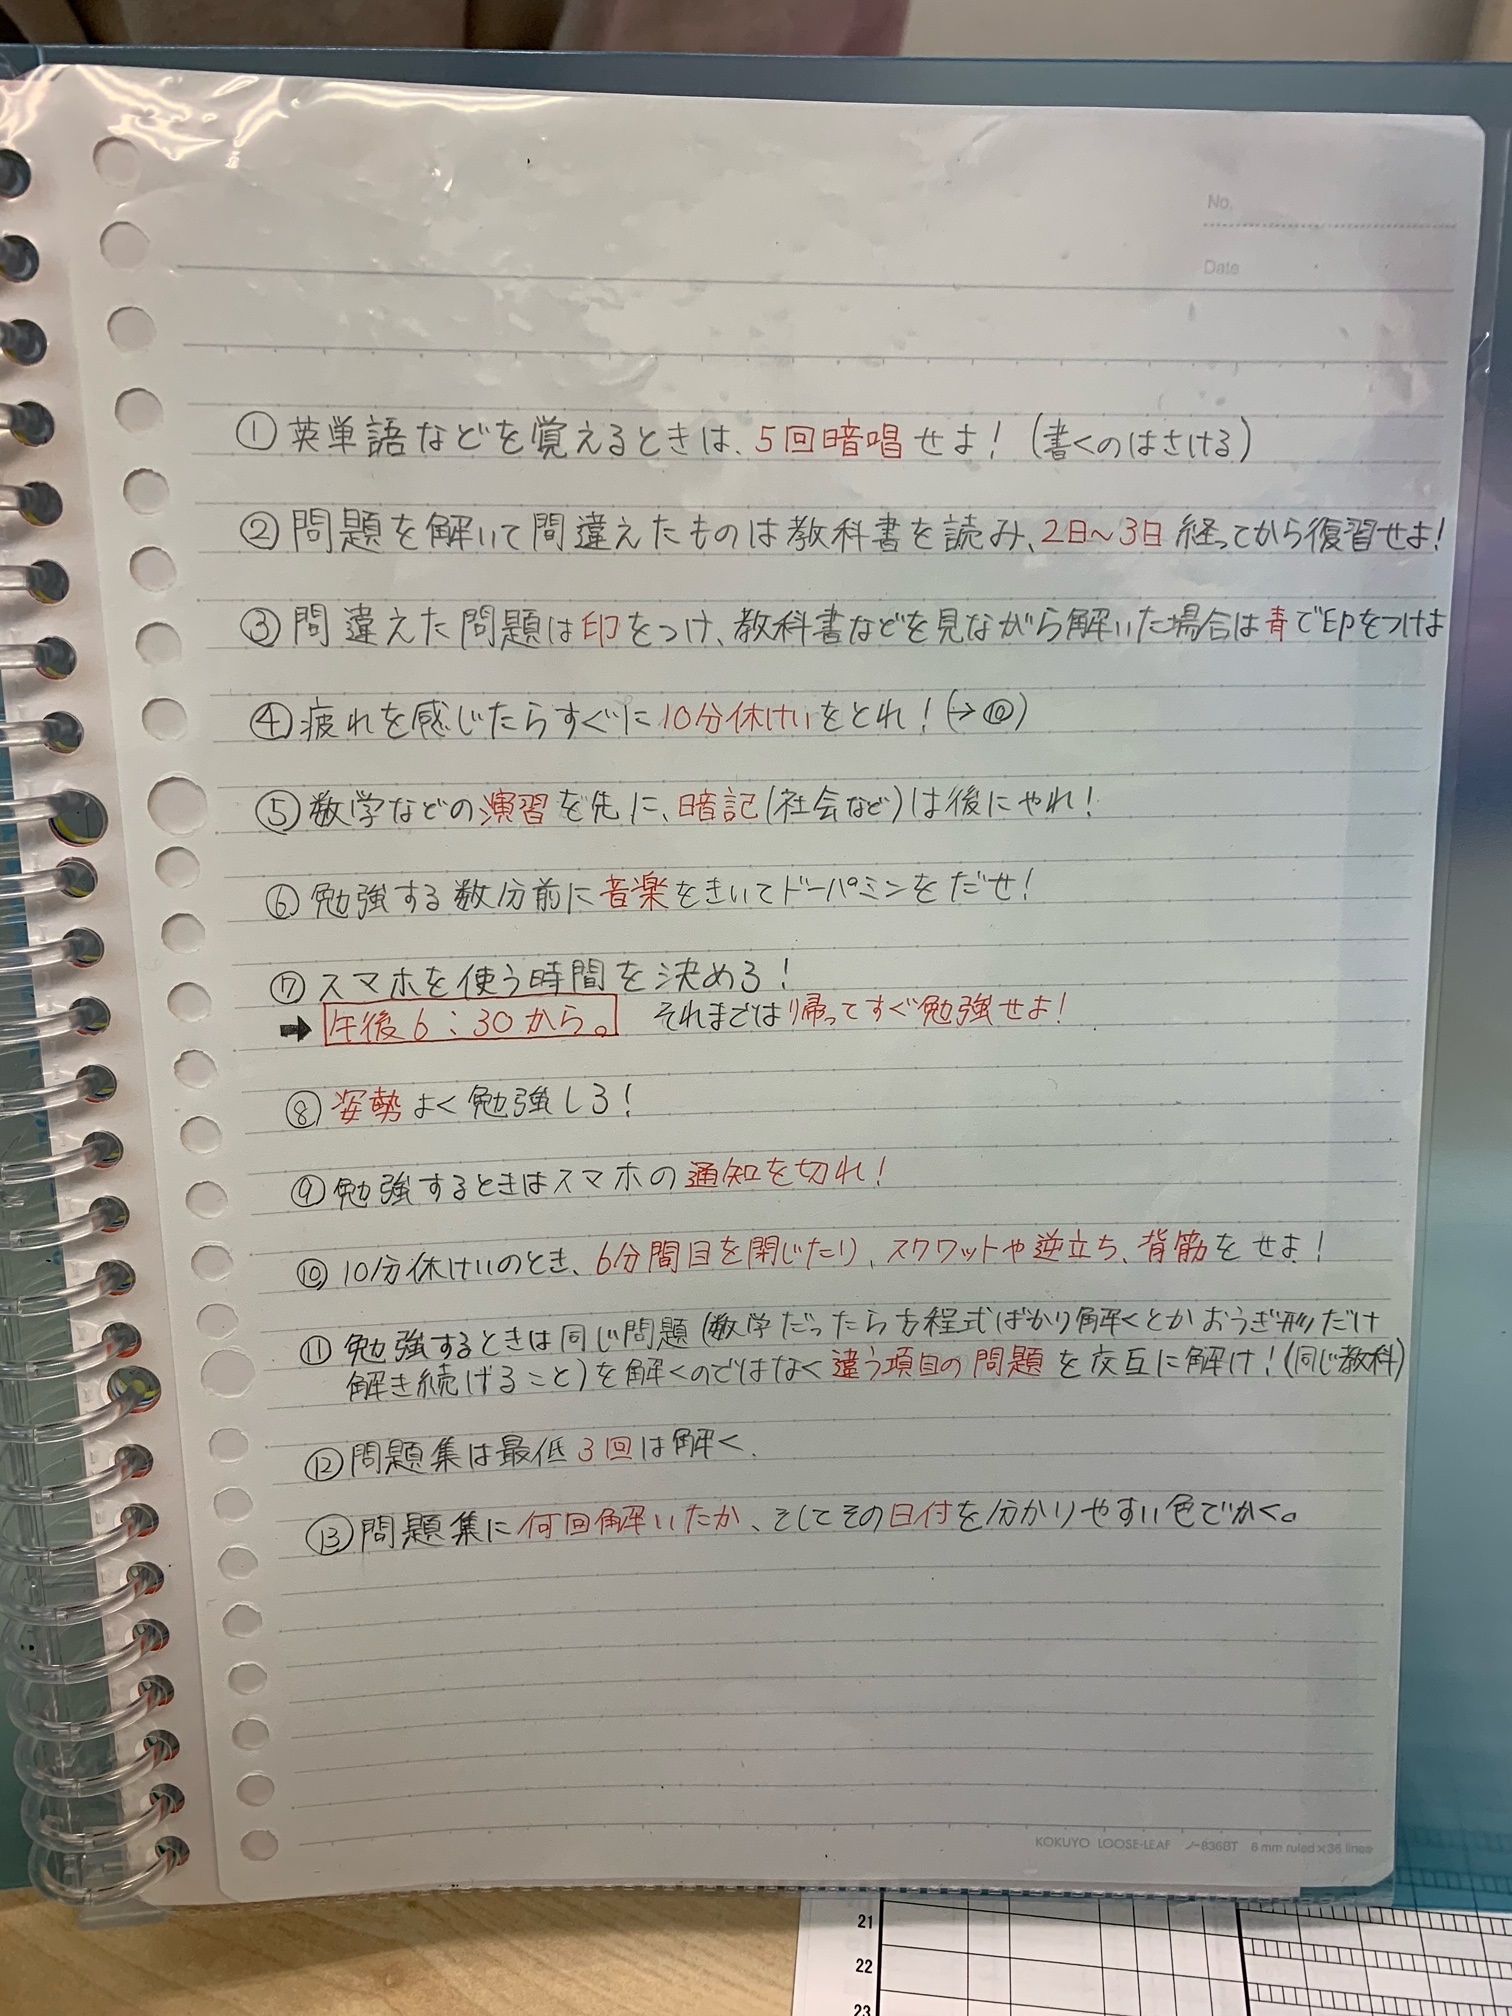 No.
Date
①英単語などを覚えるときは、5回暗唱せよ！(書くのはさける)
②問題を解いて間違えたものは教科書を読み、2日〜3日経ってから復習せよ！
③間違えた問題は印をつけ、教科書などを見ながら解いた場合は青で印をつけよ
④疲れを感じたらすぐに10分休けいをとれ！(→⑩)
⑤数学などの演習を先に、暗記(社会など)は後にやれ！
⑥勉強する数分前に音楽をきいてドーパミンをだせ！
⑦スマホを使う時間を決めろ！
➡ 午後6:30から。 それまでは帰ってすぐ勉強せよ！
⑧姿勢よく勉強しろ！
⑨勉強するときはスマホの通知を切れ！
⑩10分休けいのとき、6分間目を閉じたり、スクワットや逆立ち、背筋をせよ！
⑪勉強するときは同じ問題(数学だったら方程式ばかり解くとかおうぎ形だけ
解き続けること)を解くのではなく違う項目の問題を交互に解け！(同じ教科)
⑫問題集は最低3回は解く、
⑬問題集に何回解いたか、そしてその日付を分かりやすい色でかく。
KOKUYO LOOSE-LEAF ノ-836BT 6 mm ruled×36 lines
21
22
23